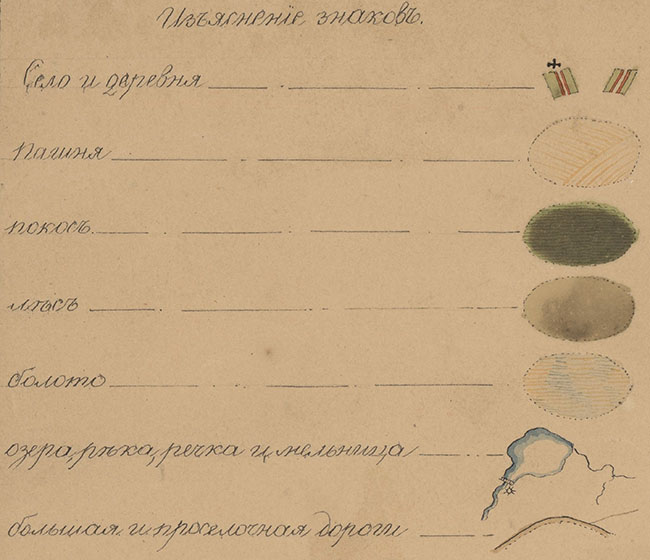 Изъясненіе знаковъ.
Село и деревня
пашня
покосъ
лѣсъ
болото
озера, рѣка, речка и мельница
большая и проселочная дороги